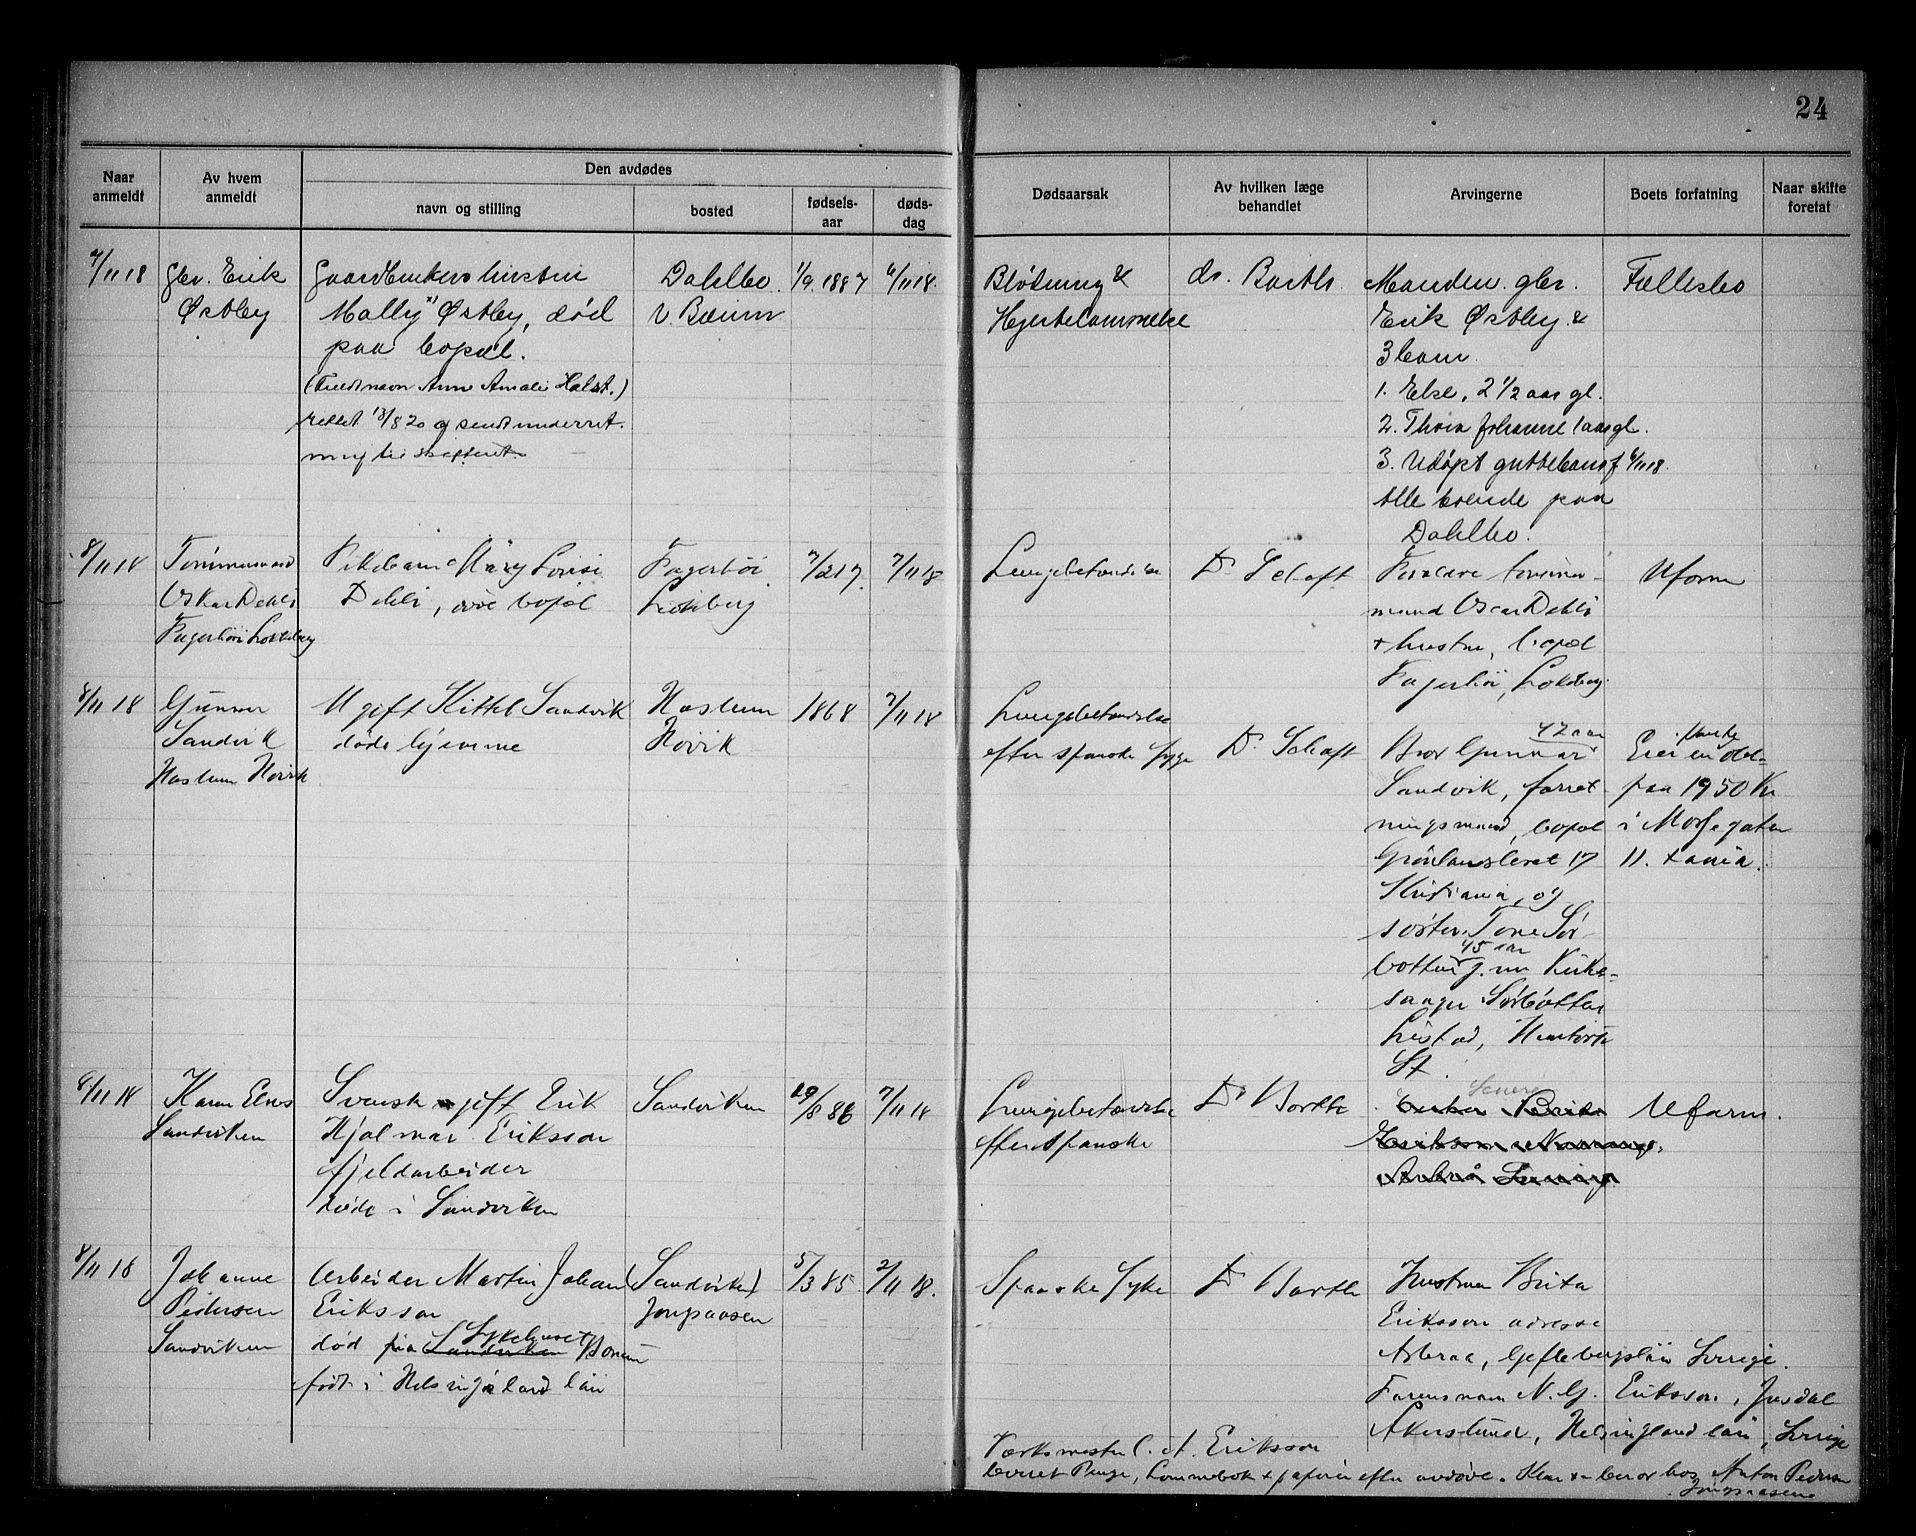 24
Naar anmeldt
Av hvem anmeldt
Den avdødes
navn og stilling
bosted
fødsels-aar
døds-dag
Dødsaarsak
Av hvilken læge behandlet
Arvingerne
Boets forfatning
Naar skifte foretat
7/11 18
gbr. Erik
Østby
Gaardbrukers hustru
Mally Østby, død
paa bopæl.
(Fuldt navn Anne Amalie Holst.)
rettet 13/8 20 og sendt underret-
ning til skifteret.
Dahlbo
v Bærum
1/9. 1887
6/11 18.
Blødning &
Hjertelammelse
dr. Barth
Manden gbr.
Erik Østby &
3 barn
1. Else, 2 1/2 aar gl.
2. Thora Johanne 1 aar gl.
3. Udøpt guttebarn f 6/11 18.
Alle boende paa
Dahlbo.
Fællesbo
8/11 18
Tømmermand
Oskar Dehli
Fagerhøi Lokeberg
Pikebarn Mary Lovise
Dehli, død bopæl
Fagerhøi
Lokeberg
7/2 17.
7/11 18
Lungebetændelse
Dr Schaft
Forældre tømmer-
mand Oscar Dehli
+ hustru, bopæl
Fagerhøi, Lokeberg.
Uform
8/11 18
Gunnar
Sandvik
Haslum Høvik
Ugift Kittel Sandvik
døde hjemme
Haslum
Høvik
1868
7/11 18
Lungebetændelse
efter spanske syge
Dr. Schaft
42 aar
Bror Gunnar
Sandvik, forret-
ningsmand, bopæl
Grønlandsleret 17
Kristiania, og
søster Tone Sør-
45 aar
botten g. m Kirke-
sanger Sørbotten
St.
Eier en obl-
paa 1950 Kr
i Mosse gaten
11. Xania.
8/11 18
Karen Elnes
Sandviken
Svensk gift Erik
Hjalmar Eriksson
fjeldarbeider
døde i Sandviken
Sandviken
29/8 86
7/11 18
Lungebetændelse
efter spanske
Dr Barth
Senere
Ufarm.
8/11 18
Johanne
Pedersen
Sandviken
Arbeider Martin Johan
Eriksson
Sykehuset
død paa Sandviken Bærum
født i Helsingeland län
(Sandviken)
Jongsaasen
5/3 85.
2/11 18.
Spanske Syke
Dr Barth
Hustruen Brita
Eriksson adresse
Arbraa, Gefleborgslän Sverige.
Farens navn N. G. Eriksson, Jusdal
Akerslund, Helsingland län, Sverige
Værksmester C. A. Eriksson
leveret Penge, Lommebok + papirer efter avdøde. Klær beror hos Anton Pedersen
Jongsaasen